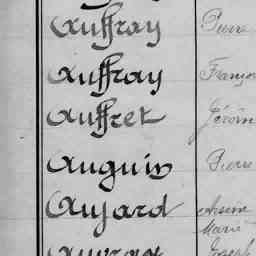 Auffray Pierre
Auffray François
Auffret Jérôm
Auguin Pierre
Aujard Arsène
Marie
Auvray Joseph